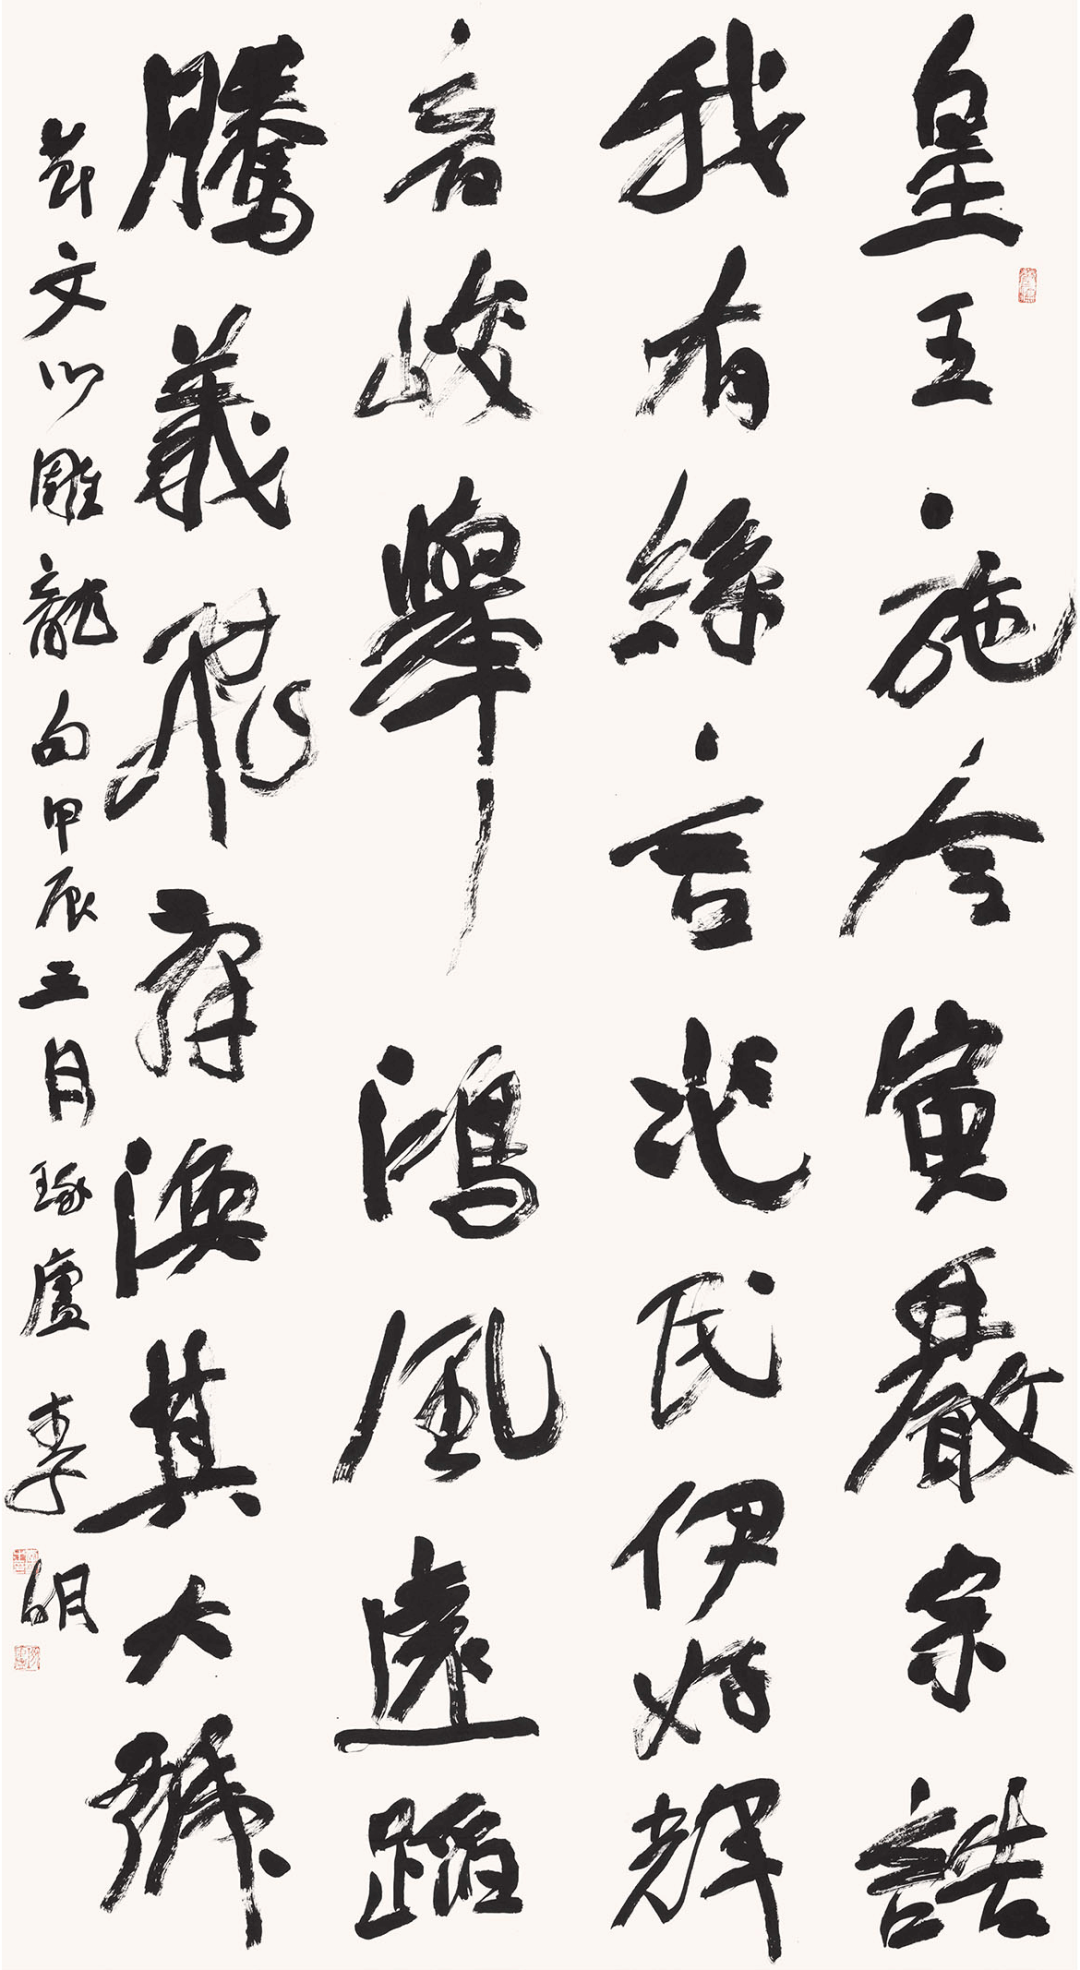 皇王施令寅嚴宗誥
我有絲言兆民伊好輝
音峻舉鴻風遠蹈
騰義飛辭渙其大號
節文心雕龍句甲辰三月琢盧李明